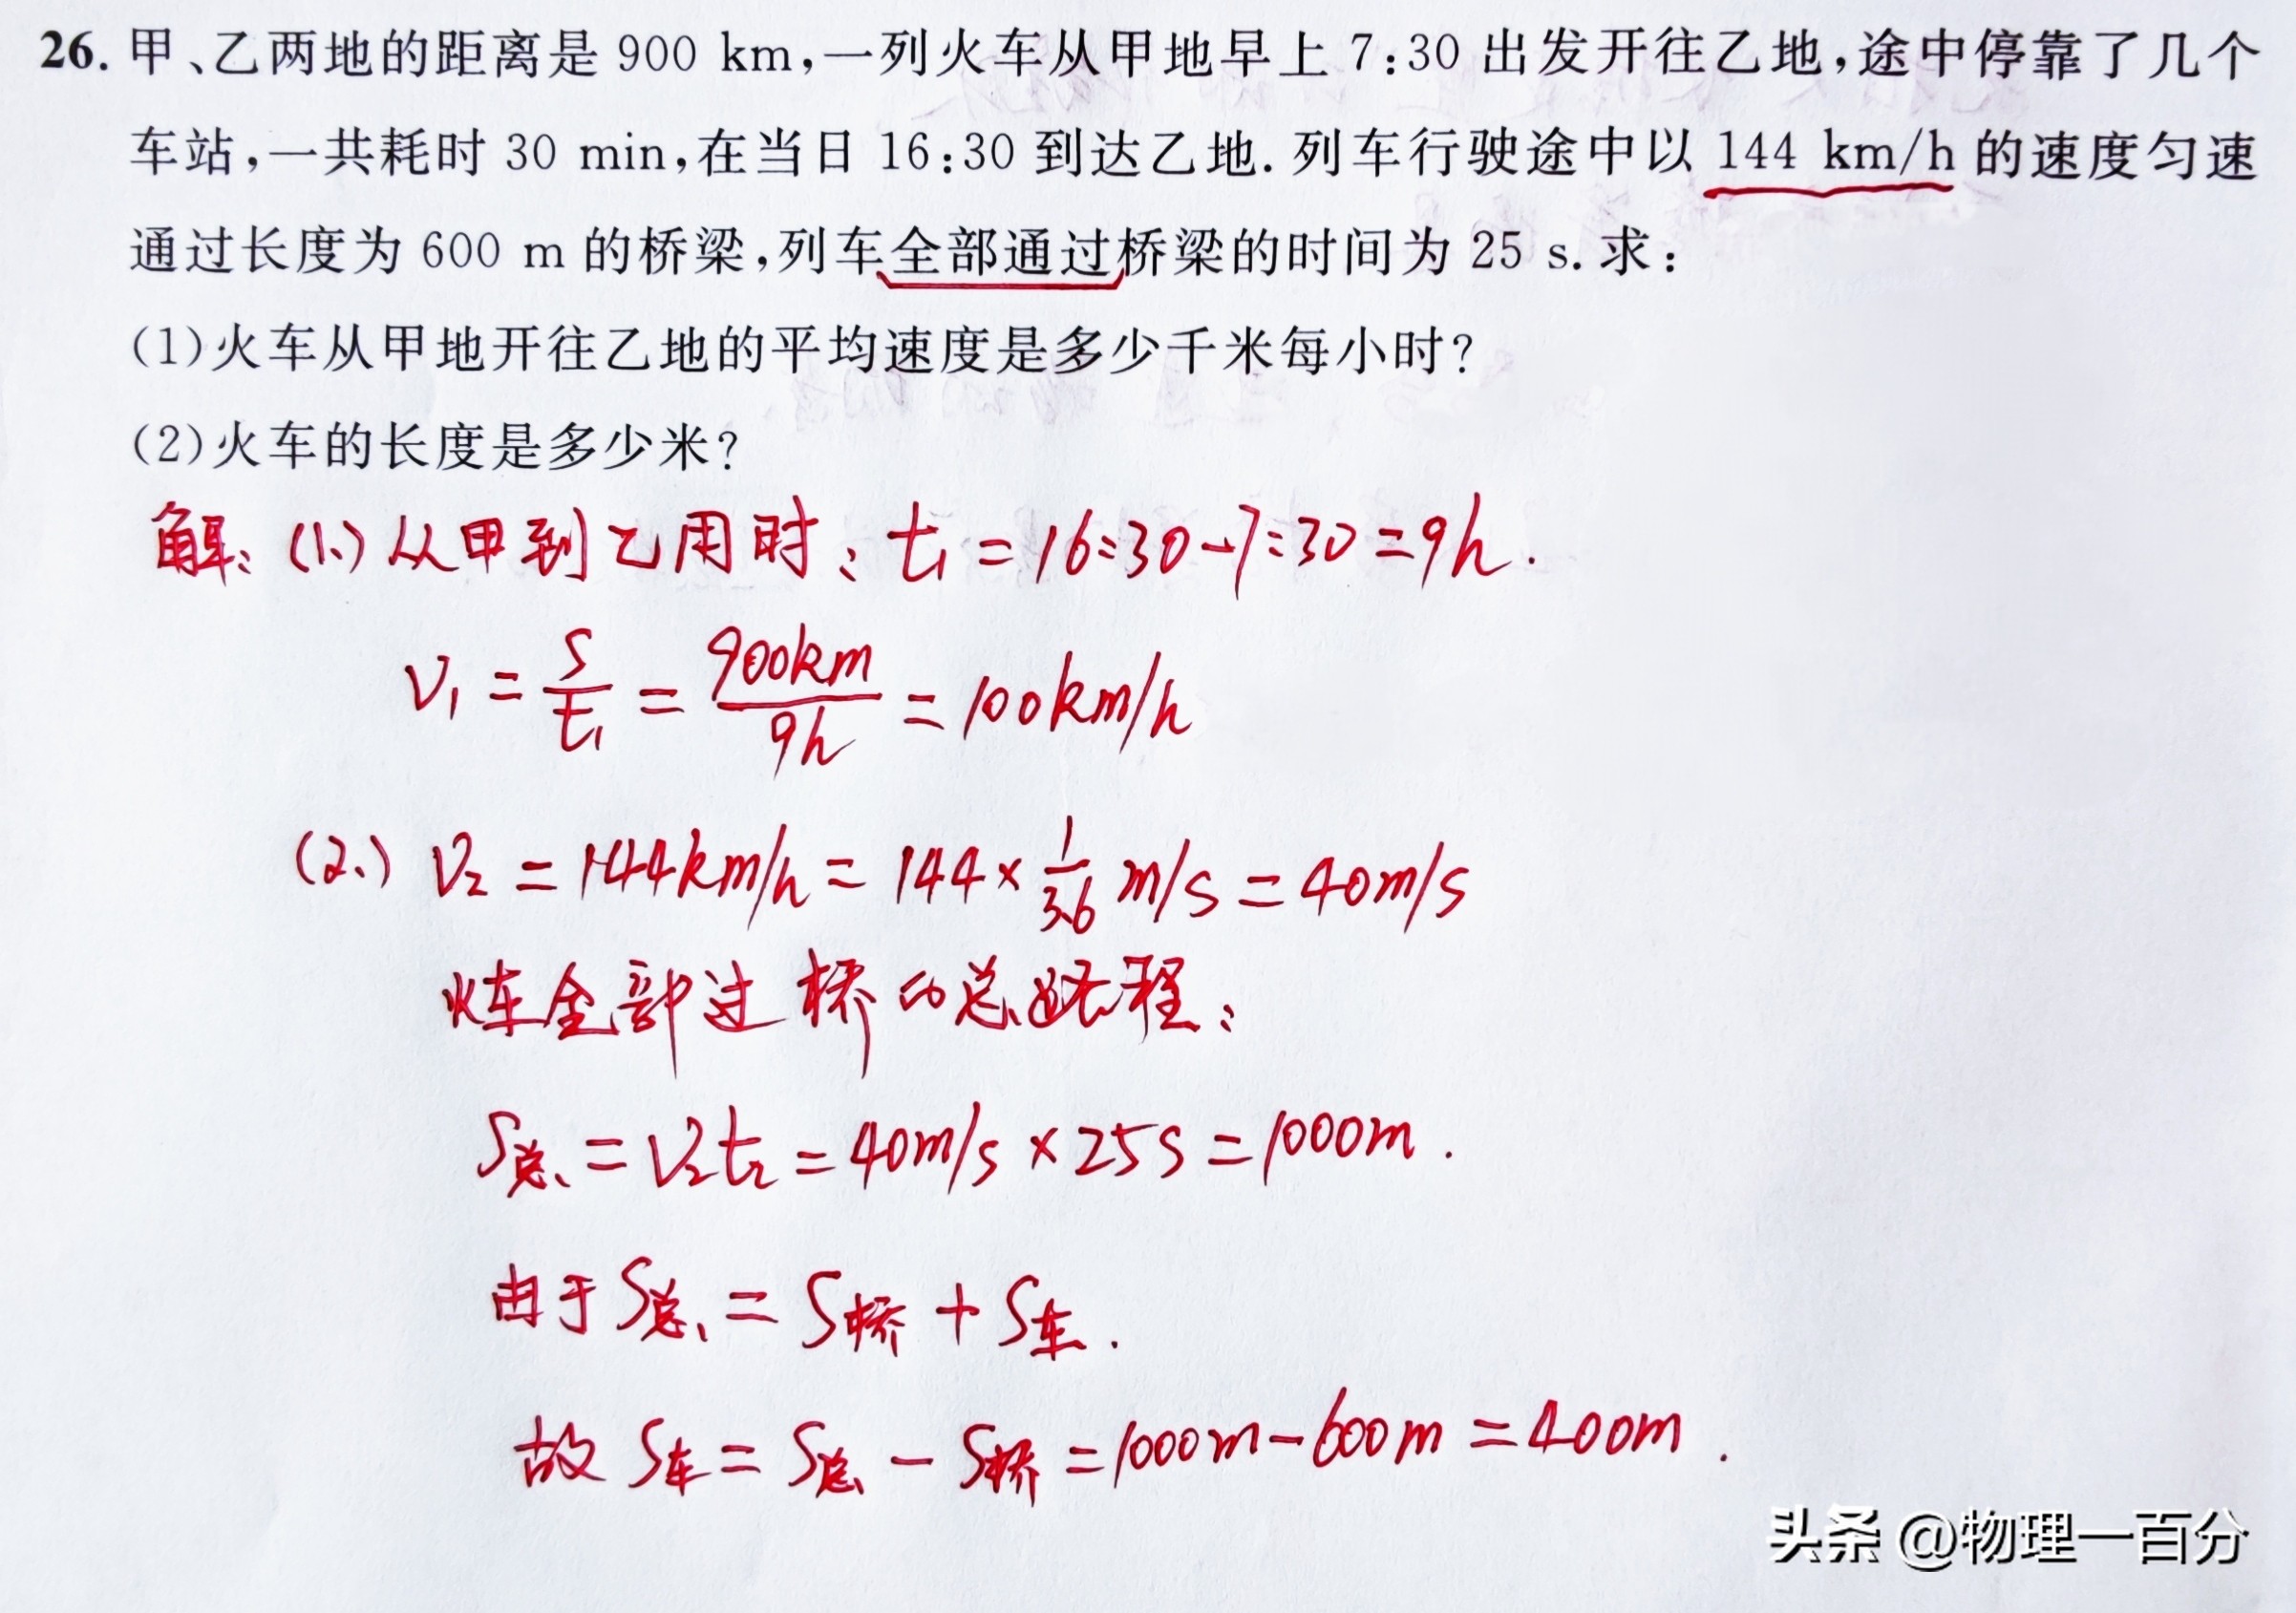 26. 甲、乙两地的距离是 900 km,一列火车从甲地早上 7:30 出发开往乙地,途中停靠了几个
车站,一共耗时 30 min,在当日 16:30 到达乙地. 列车行驶途中以 144 km/h 的速度匀速
通过长度为 600 m 的桥梁,列车全部通过桥梁的时间为 25 s. 求:
(1)火车从甲地开往乙地的平均速度是多少千米每小时?
(2)火车的长度是多少米?
解:(1.) 从甲到乙用时: t₁ = 16:30-7:30 = 9h.
V₁ = S/t₁ = 900km/9h = 100km/h
(2.) V₂ = 144km/h = 144 × 1/3.6 m/s = 40m/s
火车全部过桥的总路程:
S总 = V₂t₂ = 40m/s × 25s = 1000m.
由于 S总 = S桥 + S车.
故 S车 = S总 - S桥 = 1000m - 600m = 400m.
头条 @物理一百分